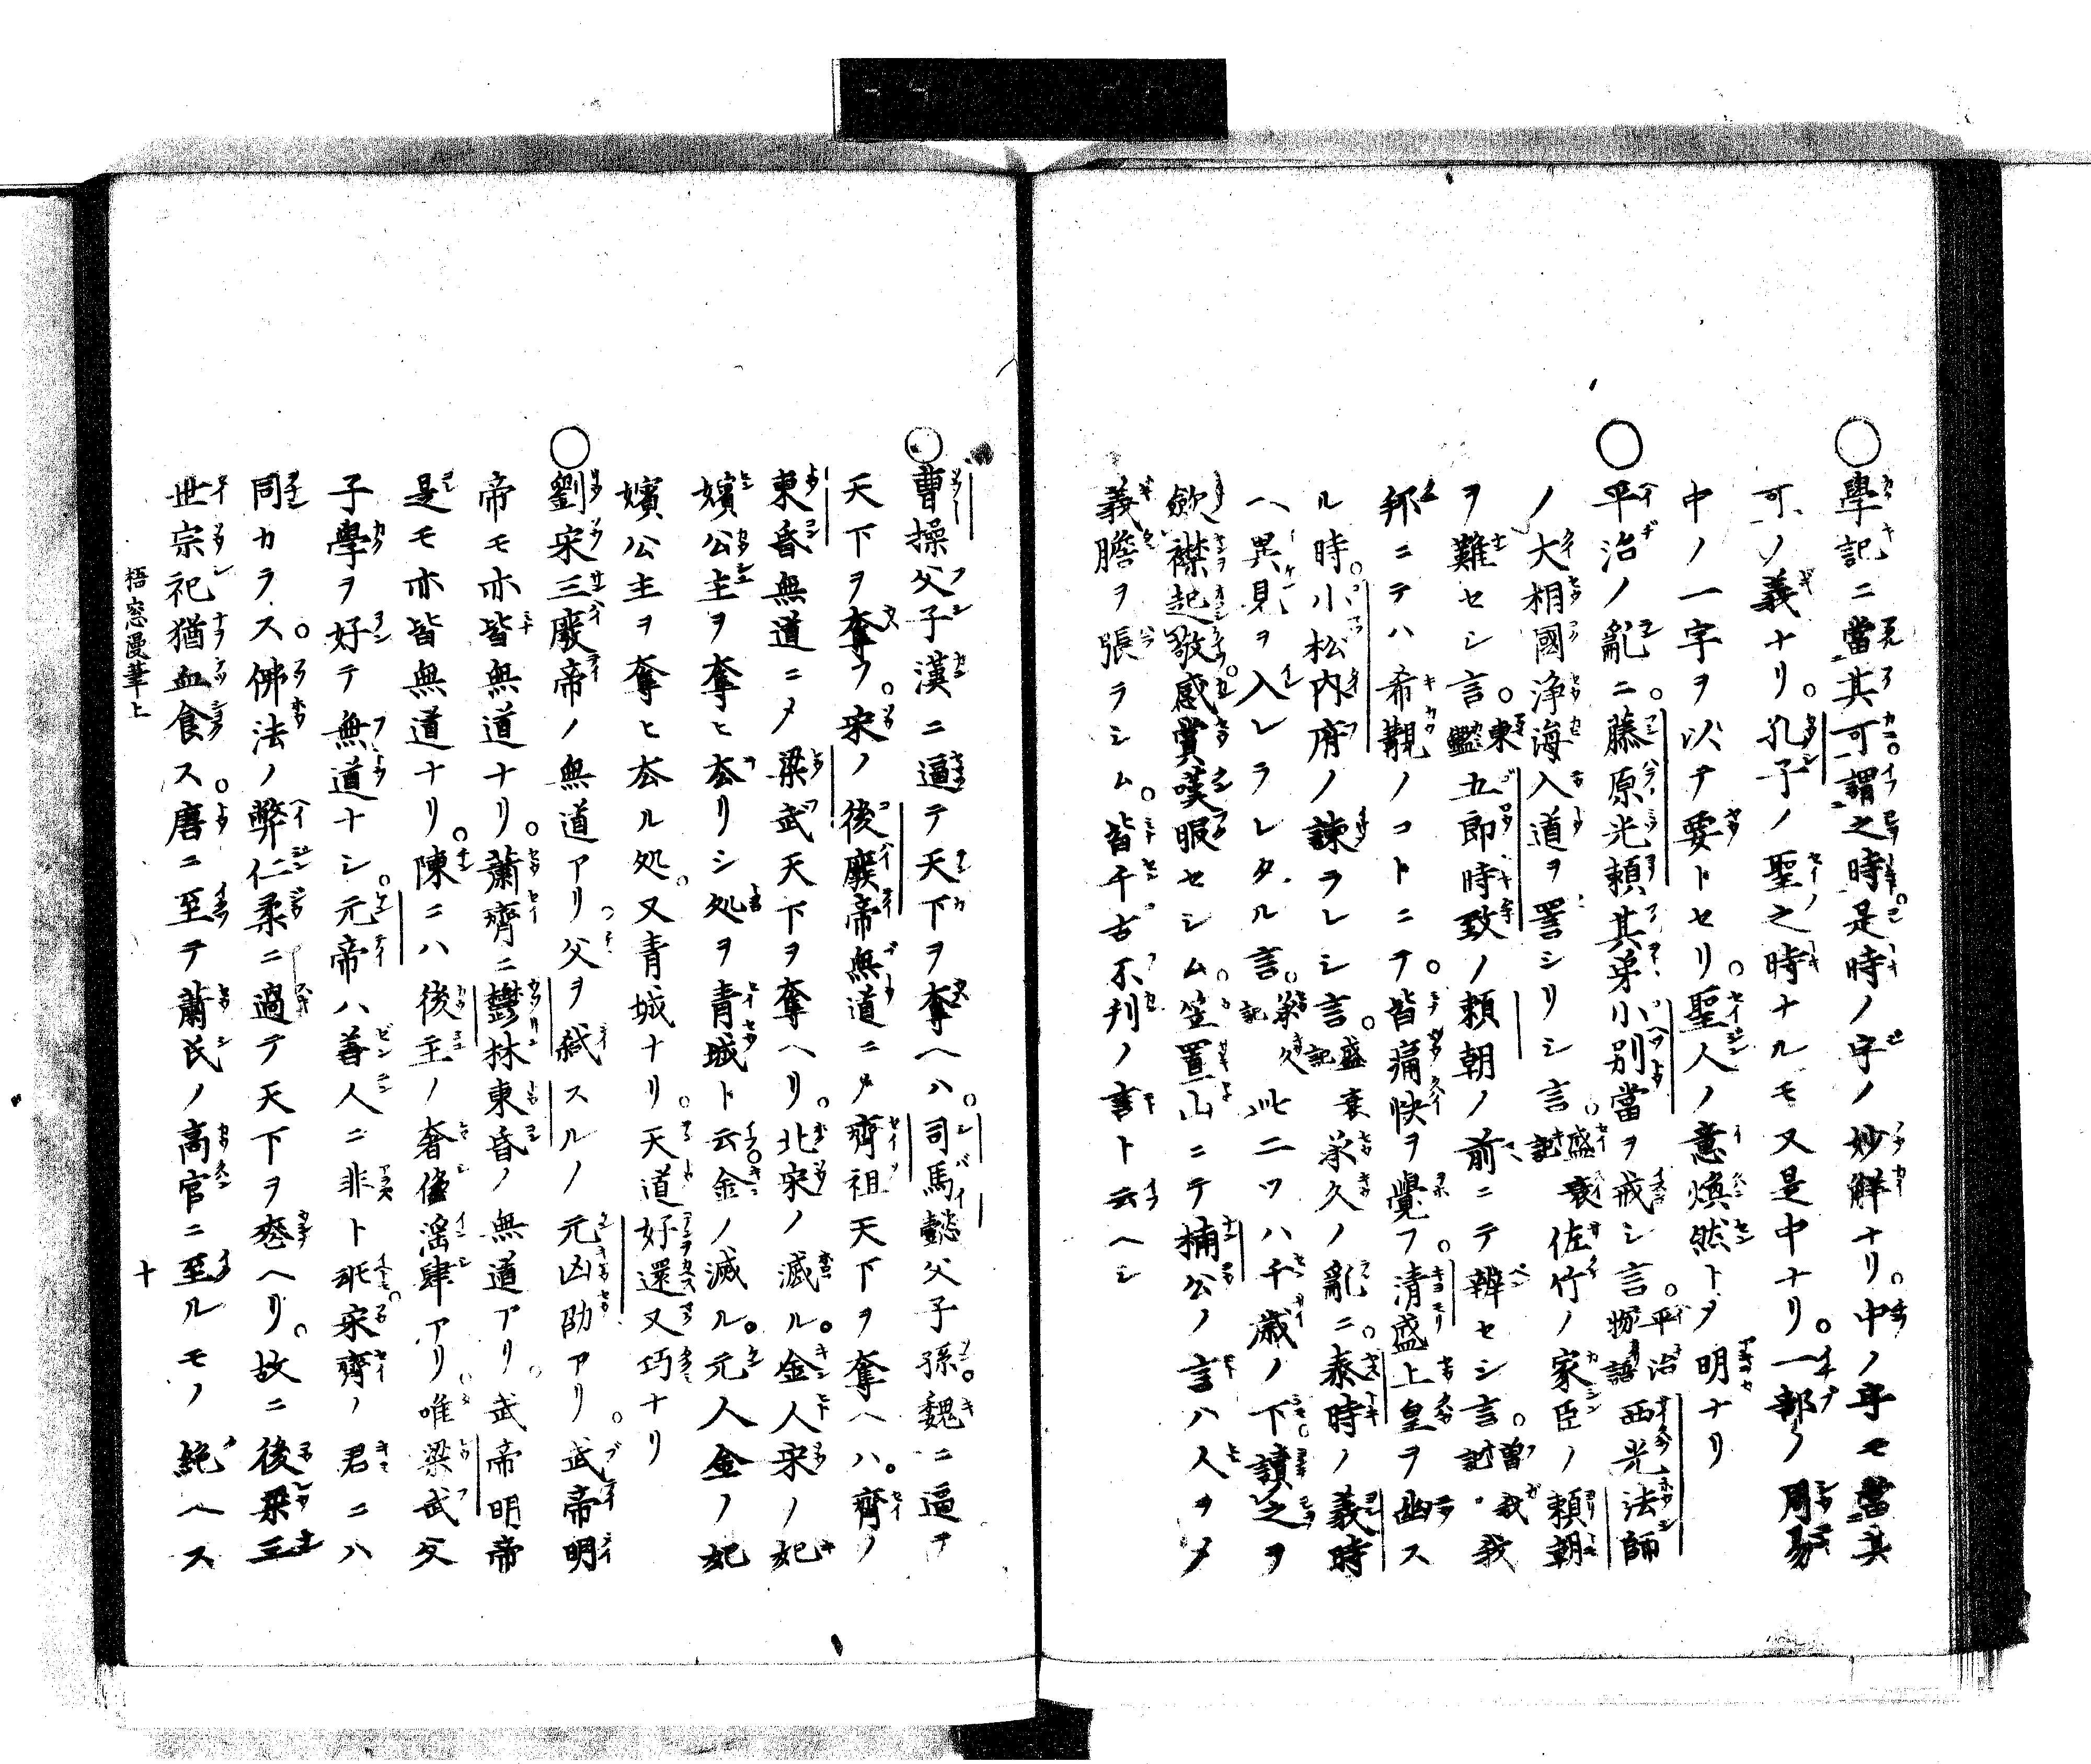 〇學記ニ當其可謂之時是時ノ字ノ妙解ナリ。中ノ字モ當其
可ノ義ナリ。孔子ノ聖之時ナルモ又是中ナリ。一部ノ周易
中ノ一字ヲ以テ要トセリ。聖人ノ意煥然トヲ明ナリ
〇平治ノ亂ニ。藤原光頼其弟小別當ヲ戒シ言。平治物語西光法師
ノ大相國浄海入道ヲ詈シリシ言。盛衰記佐竹ノ家臣ノ頼朝
ヲ難セシ言。東鑑五郎時致ノ頼朝ノ前ニテ辨セシ言。曽我記我
邦ニテハ希覯ノコトニテ。皆痛快ヲ覺フ。清盛上皇ヲ幽ス
ル時。小松内府ノ諫ラレシ言。盛衰記承久ノ亂ニ。泰時ノ義時
ヘ異見ヲ入レラレタル言。承久記此二ツハ千歳ノ下。讀之ヲ
歛襟起敬。感賞嘆服セシム。笠置山ニテ楠公ノ言ハ人ヲメ
義膽ヲ張ラシム。皆千古不刋ノ言ト云ヘシ
〇曹操父子漢ニ逼テ天下ヲ奪ヘハ。司馬懿父子孫魏ニ逼テ
天下ヲ奪フ。宋ノ後廢帝無道ニメ齊祖天下ヲ奪ヘハ。齊ノ
東昏無道ニメ梁武天下ヲ奪ヘリ。北宋ノ滅ル。金人宋ノ妃
嬪公主ヲ奪ヒ厺リシ処ヲ青城ト云。金ノ滅ル。元人金ノ妃
嬪公主ヲ奪ヒ厺ル処。又青城ナリ。天道好還又巧ナリ
〇劉宋三廢帝ノ無道アリ父ヲ弑スルノ元凶劭アリ。武帝明
帝モ亦皆無道ナリ。蕭齊ニ鬱林東昏ノ無道アリ。武帝明帝
是モ亦皆無道ナリ。陳ニハ後主ノ奢侈淫肆アリ。唯梁武父
子學ヲ好テ無道ナシ。元帝ハ善人ニ非ト𪜈。宋齊ノ君ニハ
同カラス。佛法ノ弊仁柔ニ過テ天下ヲ喪ヘリ。故ニ後梁三
世宗祀猶血食ス。唐ニ至テ蕭氏ノ高官ニ至ルモノ絶ヘス
梧窓漫筆上
十